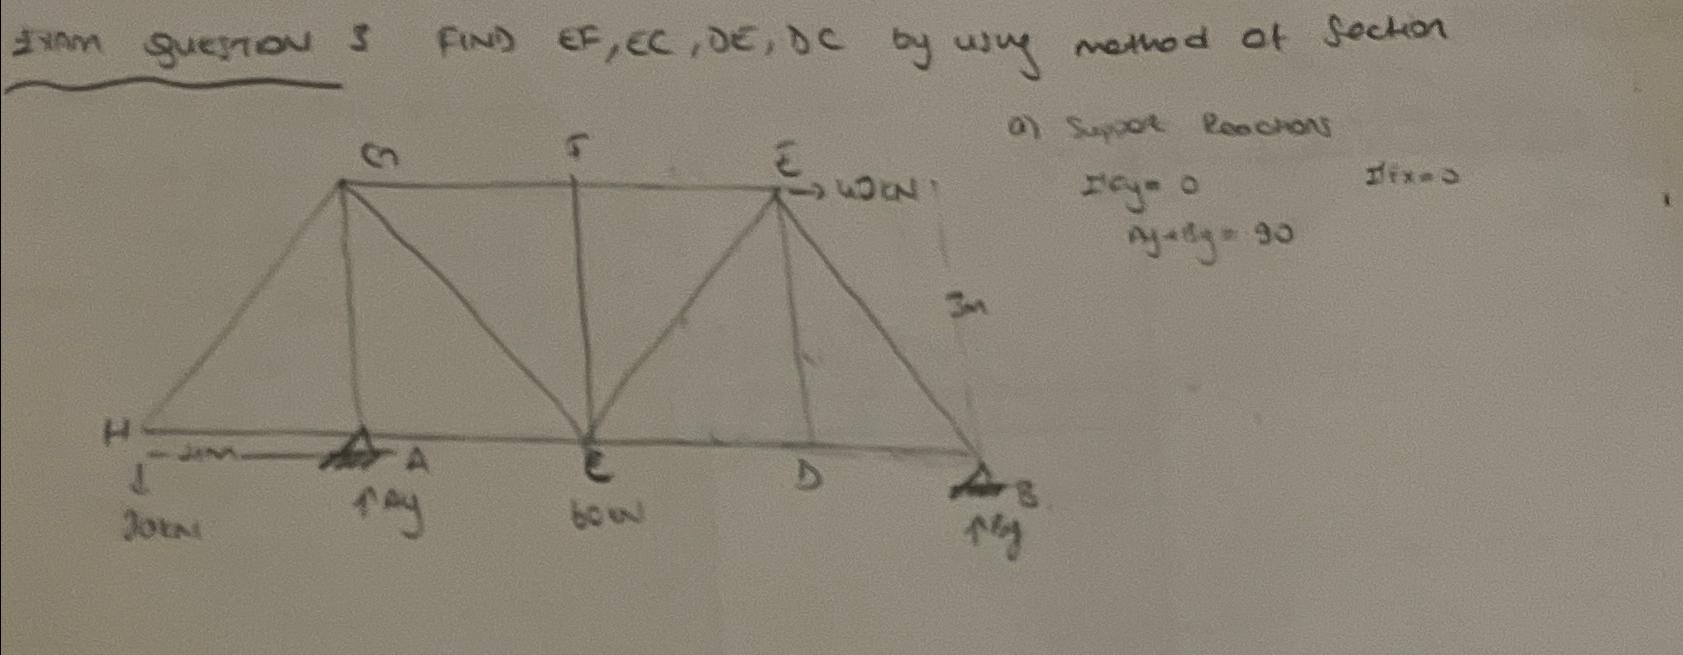 Exam Question 3 FIND EF, EC, DE, DC by using method of Section
a) Support Reactions
ΣFy = 0 ΣFx = 0
Ay + By = 90
G F E → 40kN
3m
H A C D B
2m
↓ ↑Ay 60kN ↑By
30kN